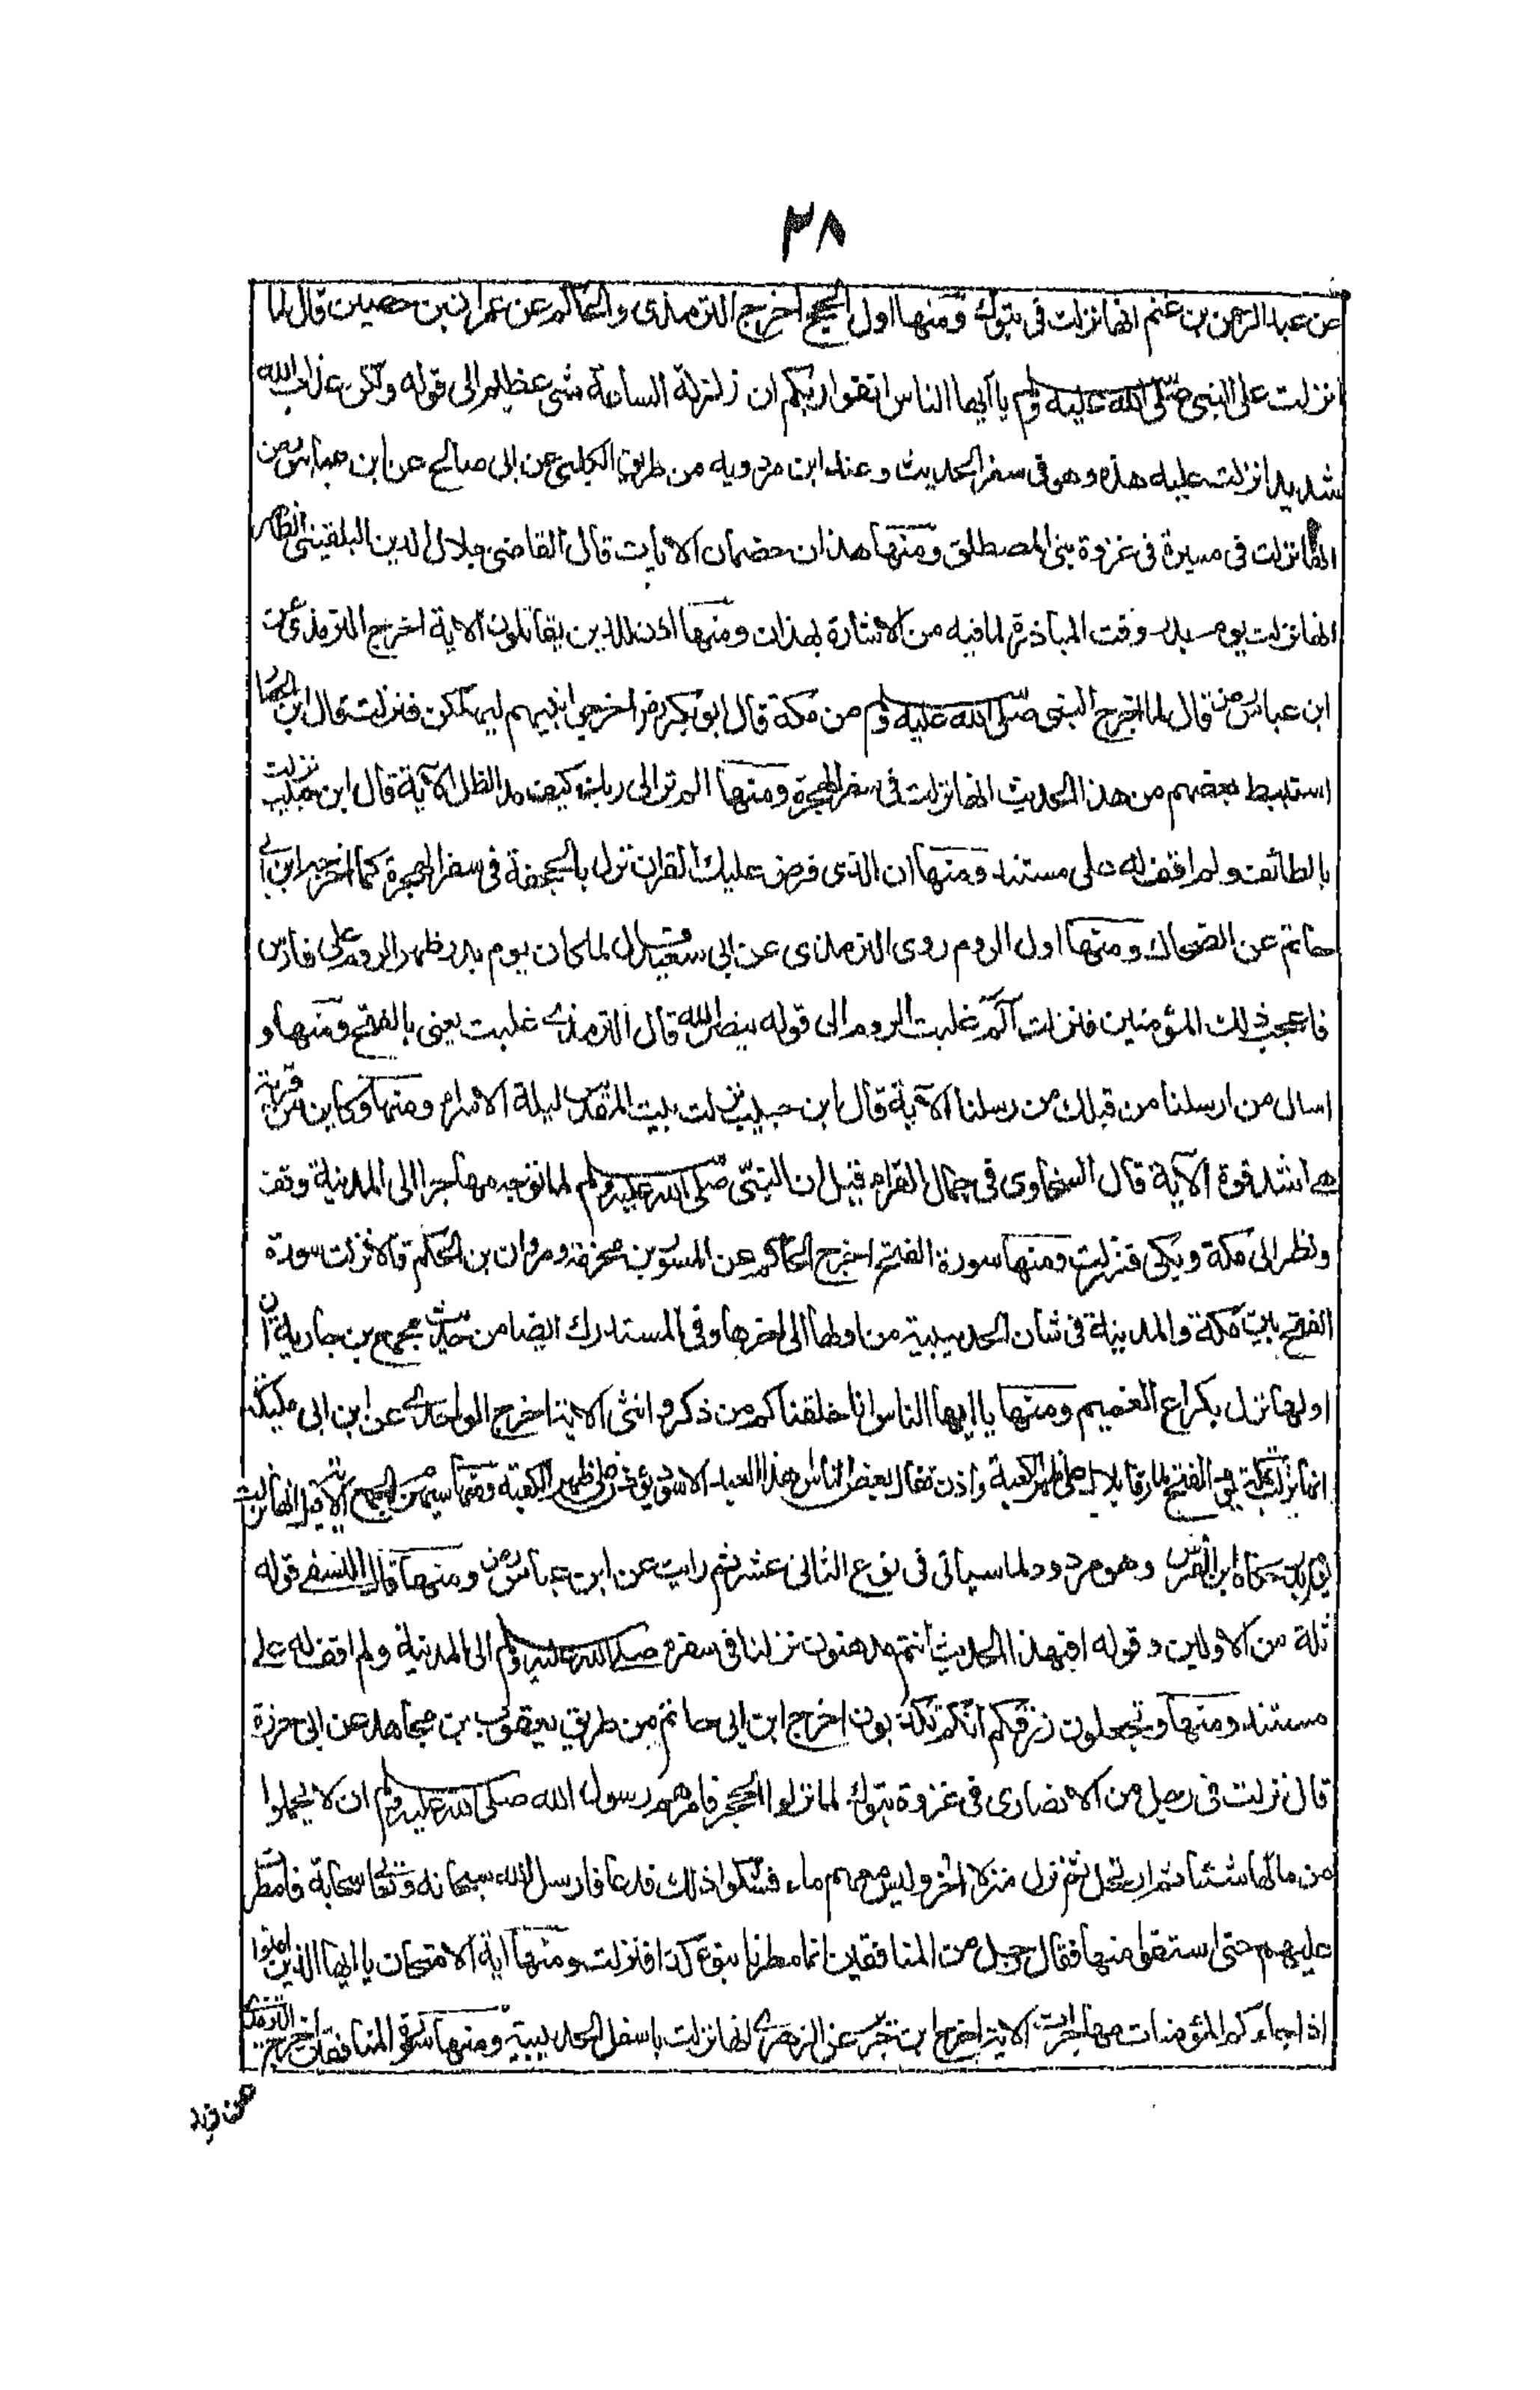 ٣٨
عن عبد الرحمن بن غنم انها نزلت فى تبوك ومنها اول الحج اخرج الترمذى والحاكم عن عمران بن حصين قال لما
انزلت على النبى صلى الله عليه وسلم يا ايها الناس اتقوا ربكم ان زلزلة الساعة شئ عظيم الى قوله ولكن عذاب الله
شديد انزلت عليه هذه وهو فى سفر الحديث وعند ابن مردويه من طريق الكلبى عن ابى صالح عن ابن عباس رض
انها نزلت فى مسيرة فى غزوة بنى المصطلق ومنها هذان خصمان الايات قال القاضى جلال الدين البلقينى الظاهر
انها نزلت يوم بدر وقت المبارزة لما فيه من الاشارة بهذان ومنها اذن للذين يقاتلون الاية اخرج الترمذى عن
ابن عباس رض قال لما اخرج النبى صلى الله عليه وسلم من مكة قال ابو بكر رض اخرجوا نبيهم ليهلكن فنزلت قال ابن الحصا
استنبط بعضهم من هذا الحديث انها نزلت فى سفر الهجرة ومنها الم تر الى ربك كيف مد الظل الاية قال ابن حبيب نزلت
بالطائف ولم اقف له على مستند ومنها ان الذى فرض عليك القران نزل بالجحفة فى سفر الهجرة كما اخرجه ابن ابى
حاتم عن الضحاك ومنها اول الروم روى الترمذى عن ابى سعيد قال لما كان يوم بدر ظهر الروم على فارس
فاعجب ذلك المؤمنين فنزلت آلم غلبت الروم الى قوله بنصر الله قال الترمذى غلبت يعنى بالفتح ومنها و
اسال من ارسلنا من قبلك من رسلنا الآية قال ابن حبيب نزلت ببيت المقدس ليلة الاسراء ومنها وكاين من قرية
هى اشد قوة الآية قال السخاوى فى جمال القراء قيل ان النبى صلى الله عليه وسلم لما توجه مهاجرا الى المدينة وقف
ونظر الى مكة وبكى فنزلت ومنها سورة الفتح اخرج الحاكم عن المسور بن مخرمة ومروان بن الحكم قالا نزلت سورة
الفتح بين مكة والمدينة فى شان الحديبية من اولها الى اخرها وفى المستدرك ايضا من حديث مجمع بن جارية ان
اولها نزل بكراع الغميم ومنها يا ايها الناس انا خلقناكم من ذكر وانثى الاية اخرج الواحدى عن ابن ابى مليكة
انها نزلت بمكة يوم الفتح لما رقا بلال على ظهر الكعبة واذن فقال بعض الناس هذا العبد الاسود يؤذن على ظهر الكعبة ومنها سيهزم الجمع الاية قيل انها نزلت
يوم بدر حكاه ابن الفرس وهو مردود لما سياتى فى نوع الثانى عشر ثم رايت عن ابن عباس رض ومنها قال النسفى قوله
ثلة من الاولين وقوله افبهذا الحديث انتم مدهنون نزلنا فى سفره صلى الله عليه وسلم الى المدينة ولم اقف له على
مستند ومنها وتجعلون رزقكم انكم تكذبون اخرج ابن ابى حاتم من طريق يعقوب بن مجاهد عن ابى حزرة
قال نزلت فى رجل من الانصارى فى غزوة تبوك لما نزلوا الحجر فامرهم رسول الله صلى الله عليه وسلم ان لا يحملوا
من مائها شيئا ثم ارتحل ثم نزل منزلا اخر وليس معهم ماء فشكوا ذلك فدعا فارسل الله سبحانه وتعا سحابة فامطر
عليهم حتى استقوا منها فقال رجل من المنافقين انما مطرنا بنوء كذا فنزلت ومنها اية الامتحان يا ايها الذين امنوا
اذا جاءكم المؤمنات مهاجرات الاية اخرج ابن جرير عن الزهرى انها نزلت باسفل الحديبية ومنها سورة المنافقين اخرج الترمذى
عن زيد